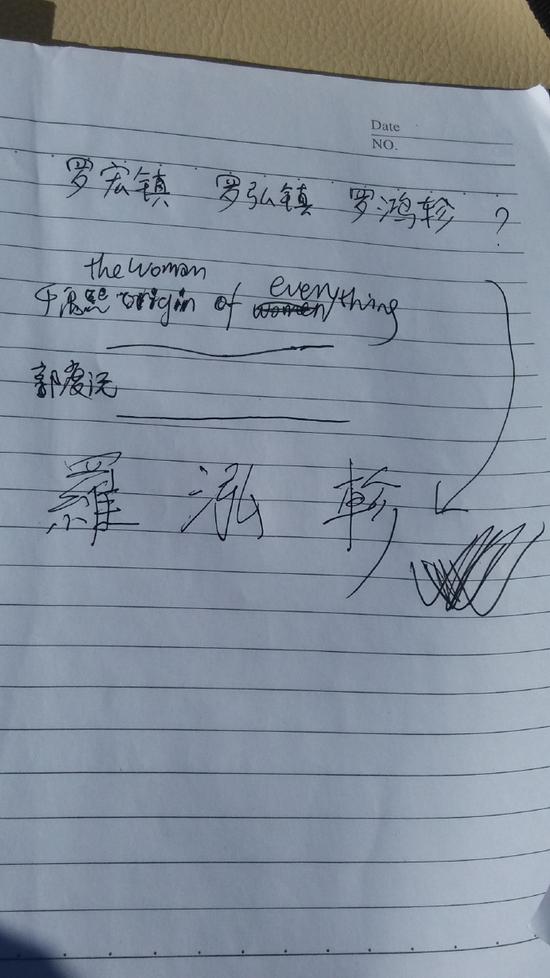 Date
NO.
罗宏镇 罗弘镇 罗鸿轸 ?
the woman
origin of everything
郭庆
羅 泓 軫